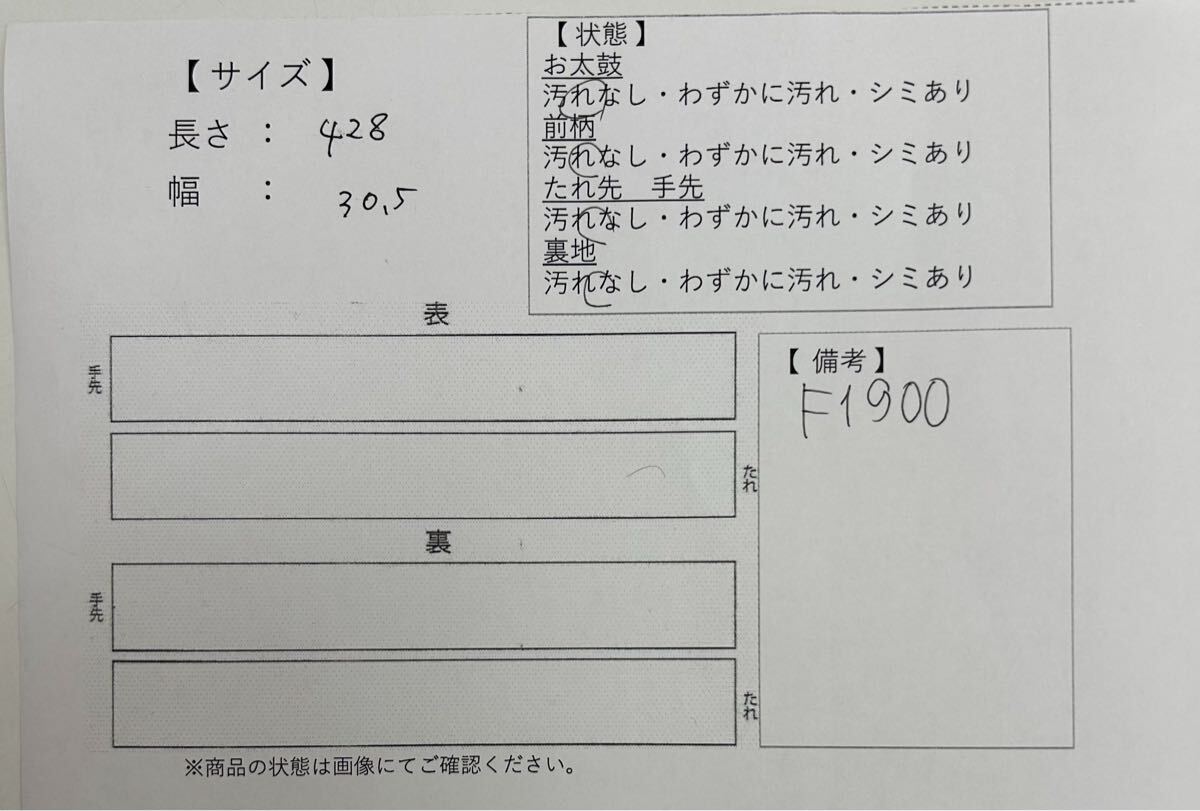 【 サイズ 】
長さ : 428
幅 : 30.5
【 状態 】
お太鼓
汚れなし・わずかに汚れ・シミあり
前柄
汚れなし・わずかに汚れ・シミあり
たれ先 手先
汚れなし・わずかに汚れ・シミあり
裏地
汚れなし・わずかに汚れ・シミあり
表
手先
たれ
裏
手先
たれ
【 備考 】
F1900
※商品の状態は画像にてご確認ください。